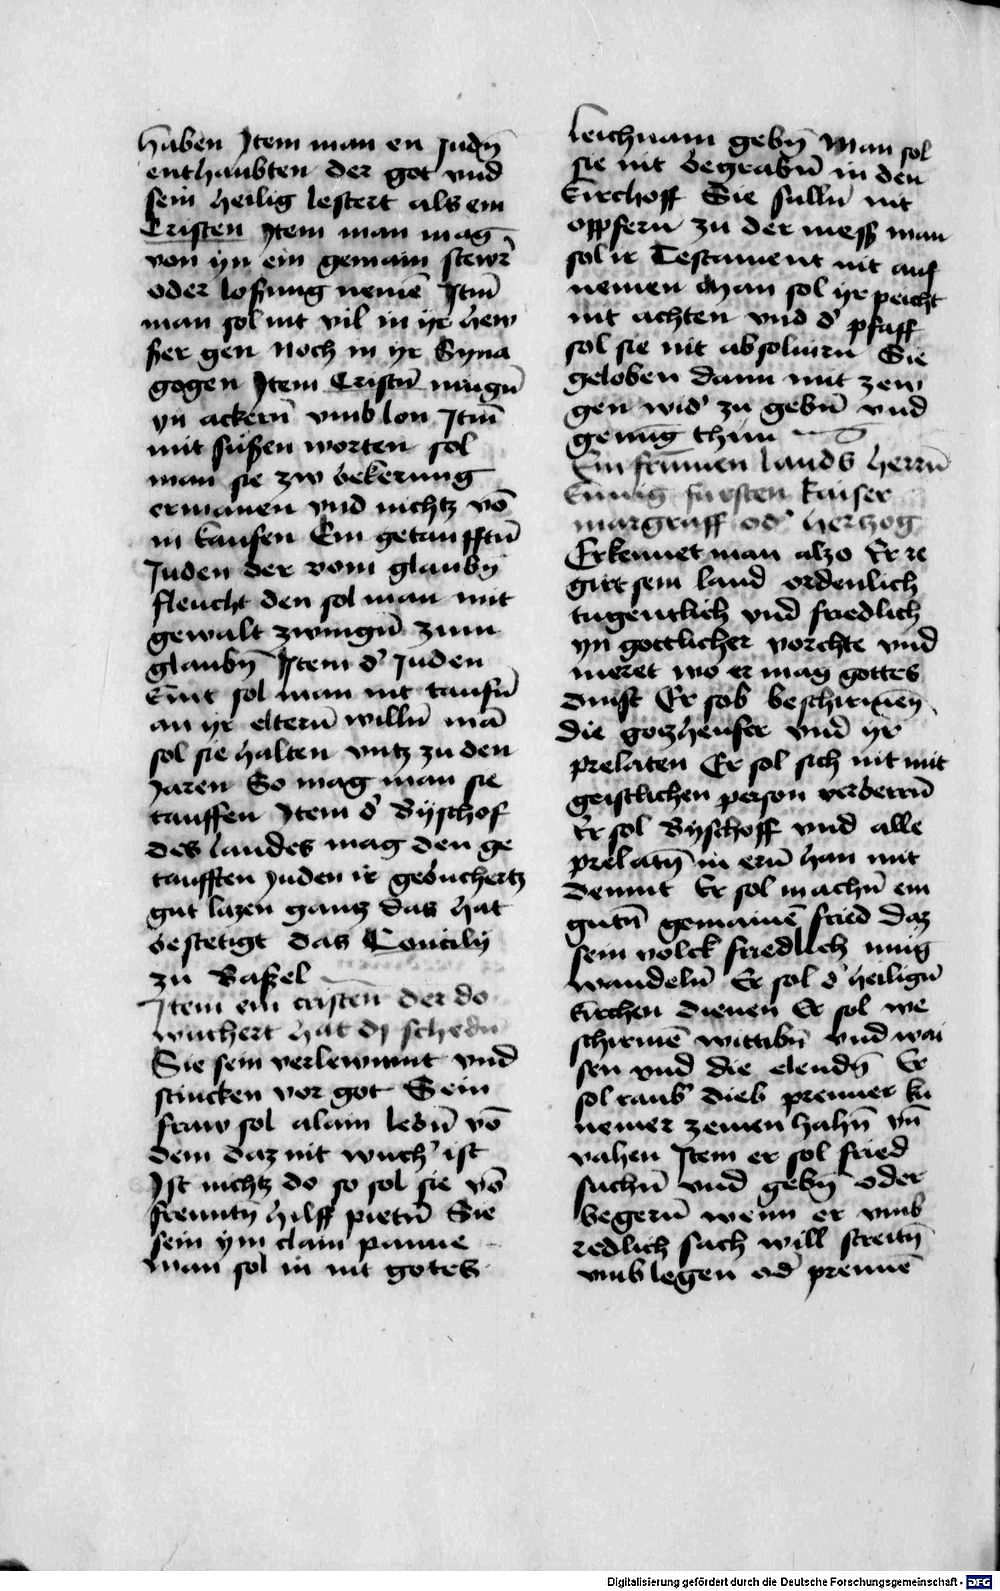 haben Jtem man en Judn̄
enthaubten der got vnd
sein heilig lestert als ein
Cristen Jtem man mag
von yn ein gemain stewr̄
oder loßung nemē Jtm̄
man sol nit vil in yr hew
ßer gen noch in yr Syna
gogen Jtem Cristn̄ mugn̄
yn ackern̄ vmb lon Jtm̄
mit süßen worten sol
man sie zw bekerung
ermanen vnd nichtz vō
in kaufen Ein getaufftn̄
Juden der vom glaubn̄
fleucht den sol man mit
gewalt zwingn̄ zum
glaubn̄ Jtem d' Juden
kint sol man nit taufn̄
an yr eltern̄ willn̄ mā
sol sie halten vntz zu den
Jaren So mag man sie
tauffen Jtem d' Byschof
des landes mag den ge
taufften Juden ir gebuchertz
gut lazen gantz das hat
bestetigt das Concilij
zu Baßel
Jtem ein cristen̄ der do
wuchert hat dj schedn̄
Sie sein verlewmnt vnd
stincken vor got Sein
fraw sol alain lebn̄ vō
dem daz nit wuch' ist
Jst nichtz do so sol sie vō
frewntn̄ hilff pietn̄ Sie
sein ym clain panne
Man sol in nit gotes
leichnam gebn̄ Man sol
sie nit begrabn̄ in den
kirchoff Sie sulln̄ nit
oppfern zu der mess man
sol ir Testament nit auf
nemen Man sol yr peicht
nit achten vnd d' pfaff
sol sie nit absoluirn Sie
geloben dann mit zew
gen wid' zu gebn̄ vnd
genüg thun
Ein frummen lands herrn̄
künig fürsten kaiser
margraff od' herzog
Erkennet man alzo Er re
girt sein land ordenlich
tugentlich vnd friedlich
yn gottlicher vorchte vnd
meret wo er mag gottes
dinst Er sol beschirmēn
die gotzheuser vnd yr
prelaten Er sol sich nit mit
geistlichen person verberrn̄
Er sol Byschoff vnd alle
prelatn̄ in ern̄ han mit
demut Er sol machn̄ ein
gutn̄ gemainē fried daz
sein volck friedlich mug
wandeln̄ Er sol d' heilign̄
kirchen dienen Er sol we
schirmē wittibn̄ vnd wai
sen vnd die elendn̄ Er
sol raub dieb prenner
nemer zemen hahn̄ vn̄
vahen Jtem er sol fried
suchn̄ vnd gebn̄ oder
begern̄ wenn er vmb
redlich sach will streitn̄
vmb legen od' prennē
Digitalisierung gefördert durch die Deutsche Forschungsgemeinschaft - DFG